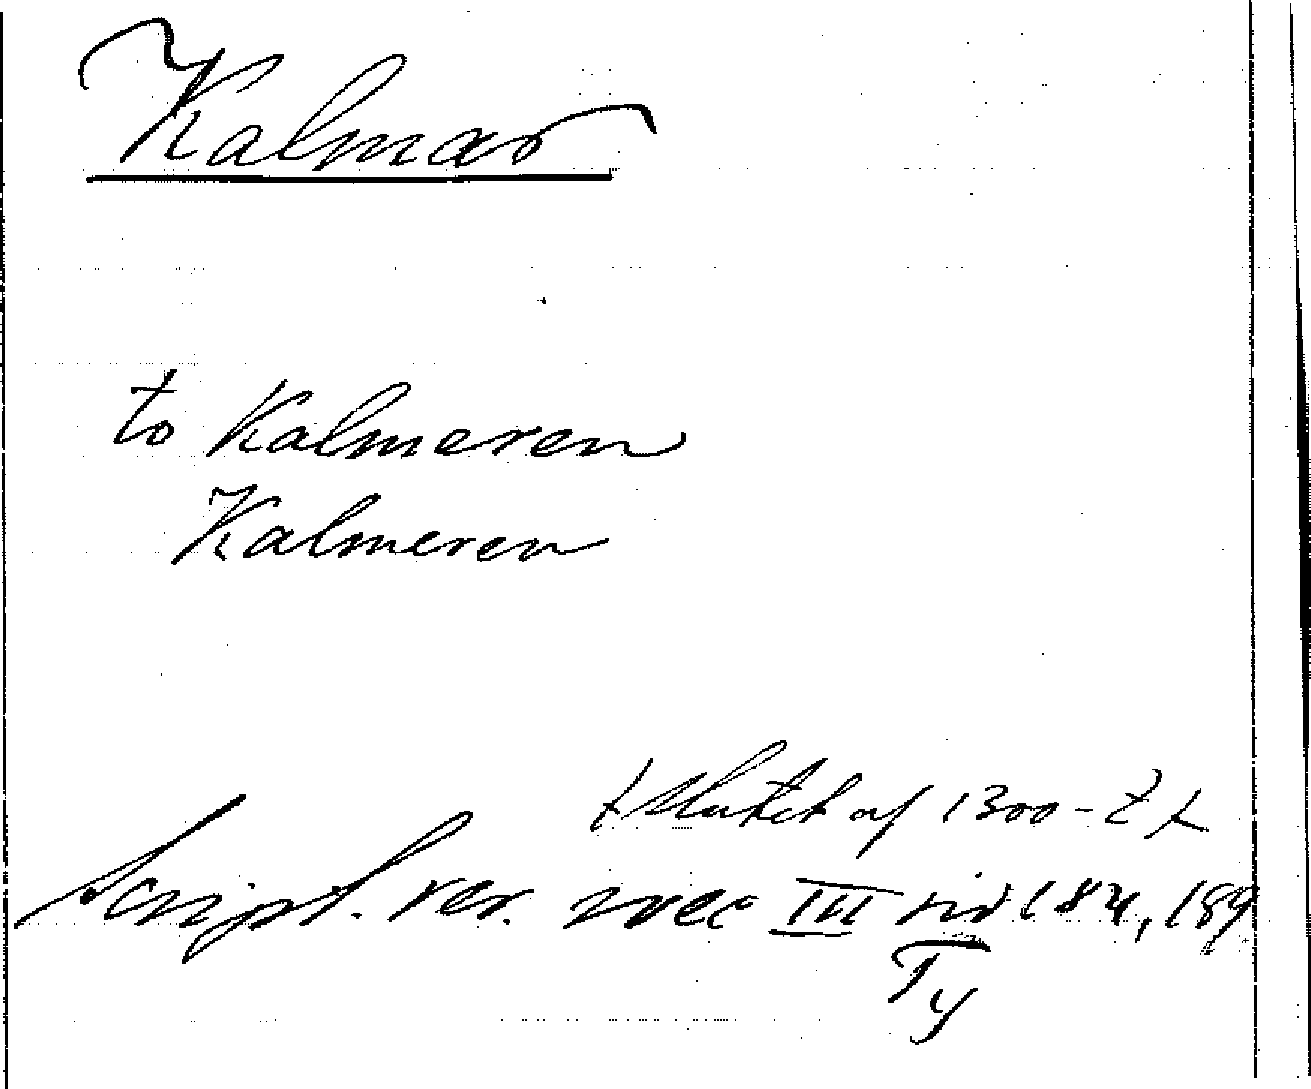 Kalmar
to Kalmeren
Kalmeren
Slutet af 1300-t
Script. rer. svec III sid 184, 189
Ty